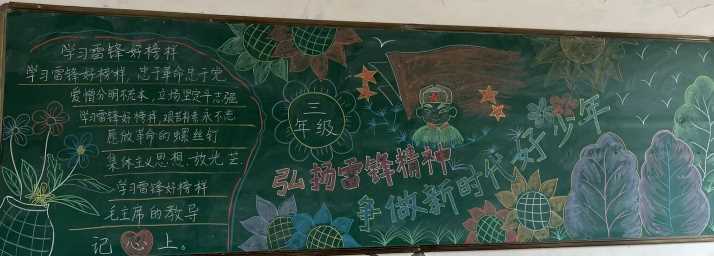 学习雷锋好榜样
学习雷锋好榜样，忠于革命忠于党
爱憎分明不忘本，立场坚定斗志强
学习雷锋好榜样 艰苦朴素永不忘
愿做革命的螺丝钉
集体主义思想放光芒
学习雷锋好榜样
毛主席的教导
记心上。
三
年级
弘扬雷锋精神
争做新时代好少年